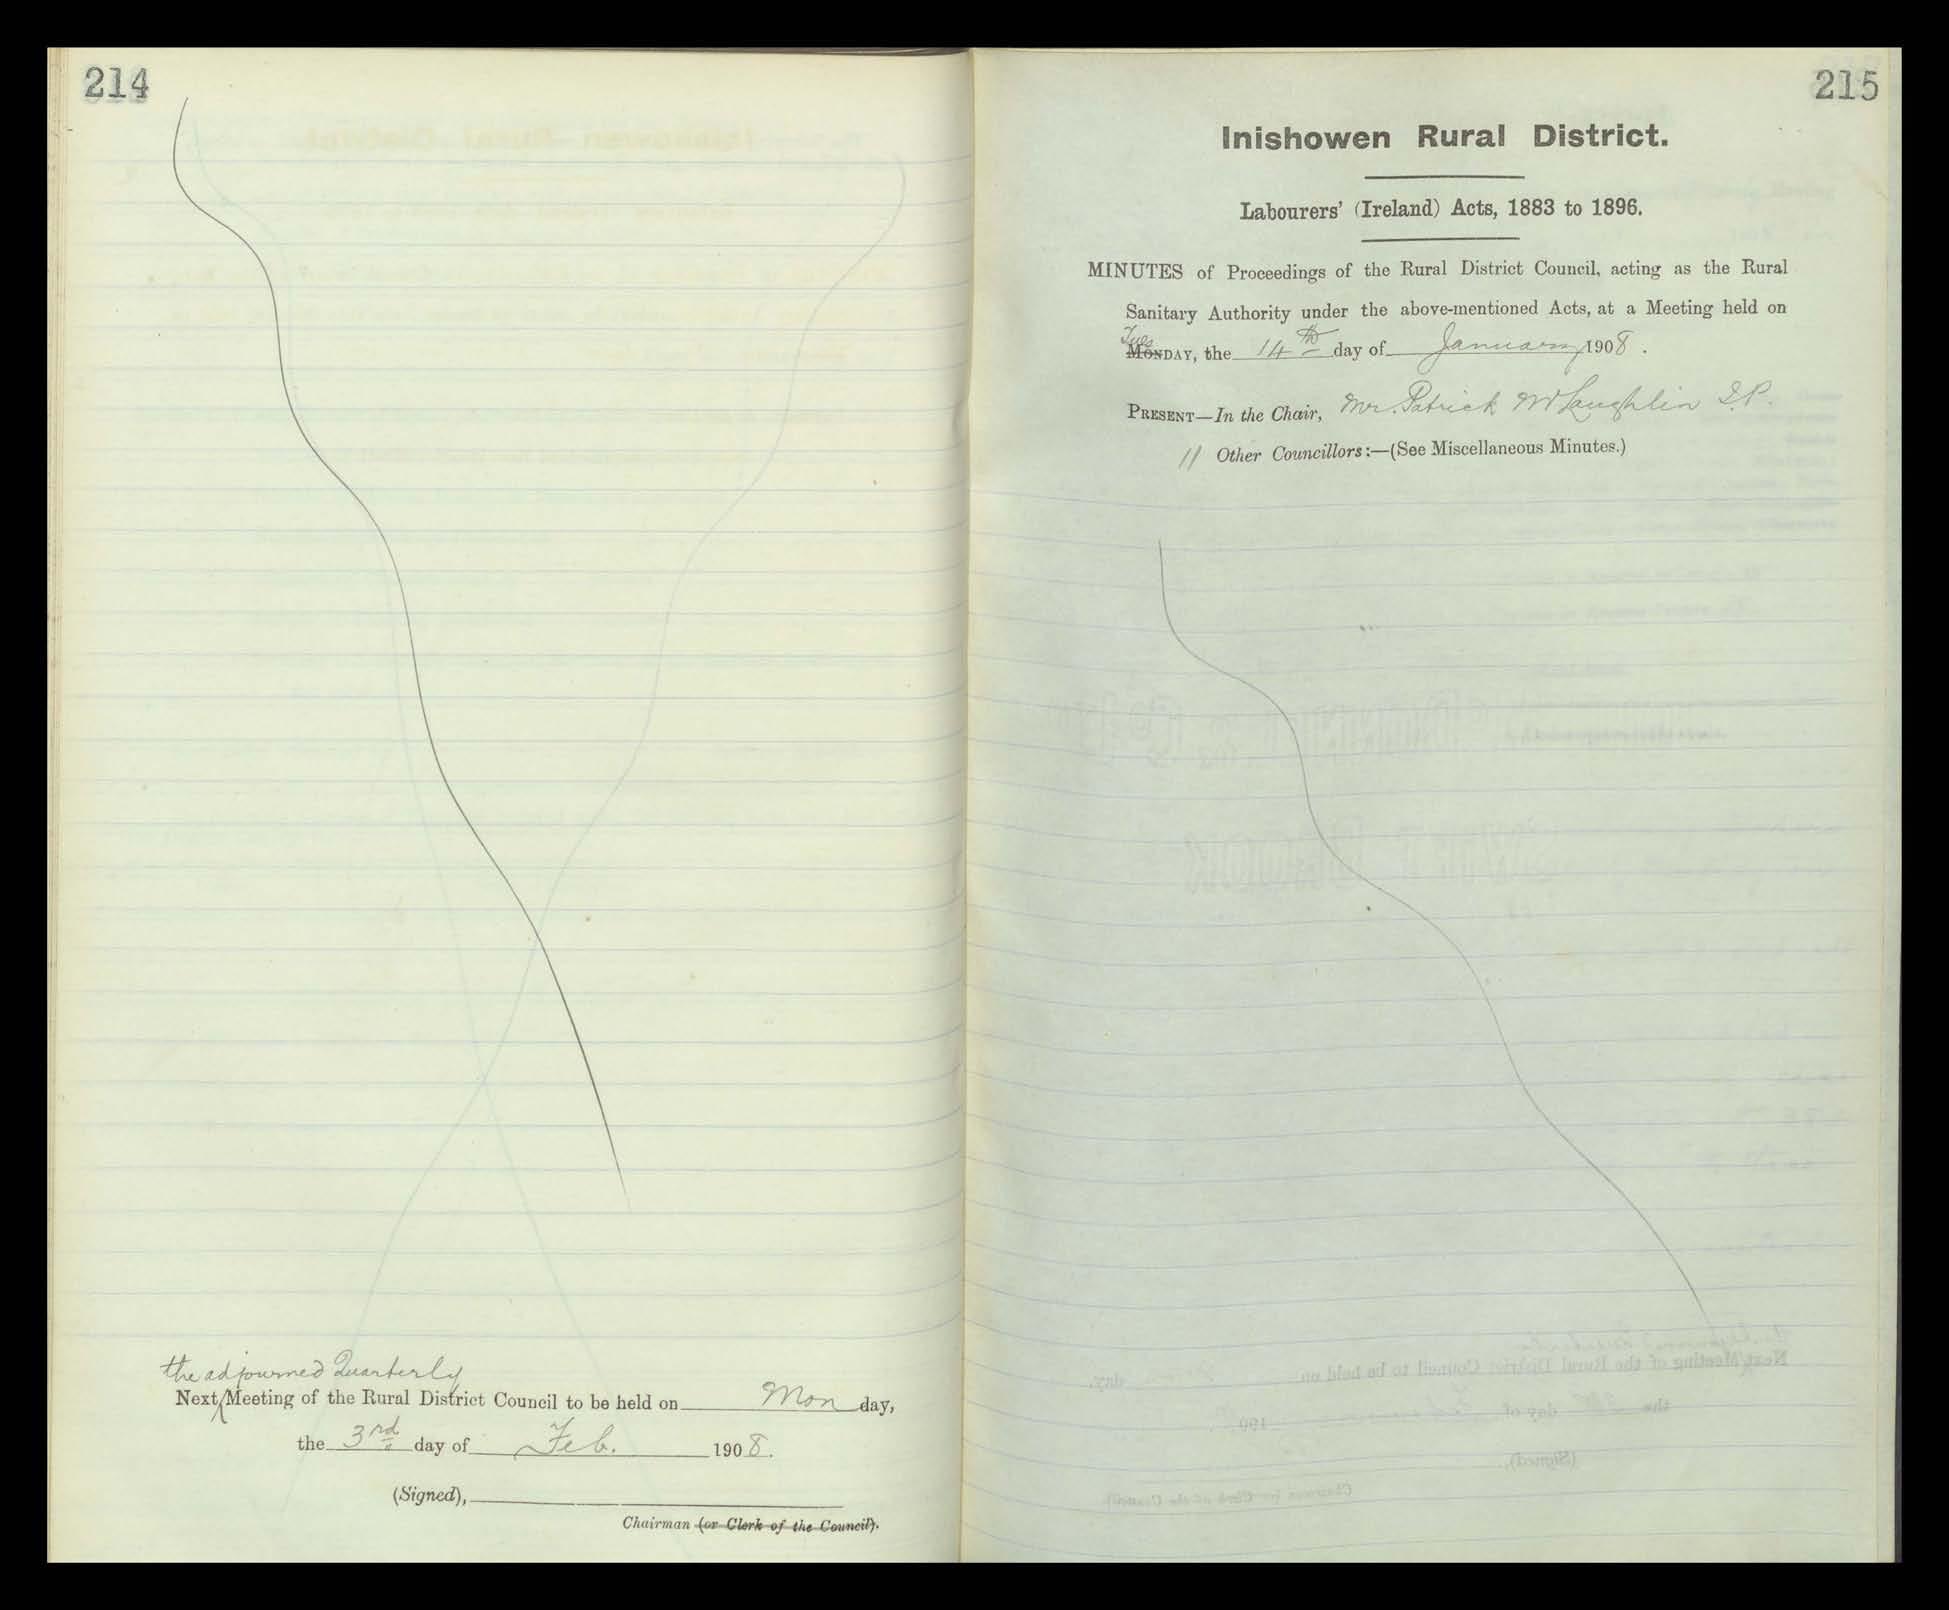 214
the adjourned Quarterly
Next Meeting of the Rural District Council to be held on Mon day,
the 3rd day of Feb. 1908.
(Signed),
Chairman (or Clerk of the Council).
215
Inishowen Rural District.
Labourers' (Ireland) Acts, 1883 to 1896.
MINUTES of Proceedings of the Rural District Council, acting as the Rural
Sanitary Authority under the above-mentioned Acts, at a Meeting held on
Tues
MONDAY, the 14th day of January 1908.
PRESENT—In the Chair, Mr. Patrick McLaughlin J.P.
11 Other Councillors:—(See Miscellaneous Minutes.)